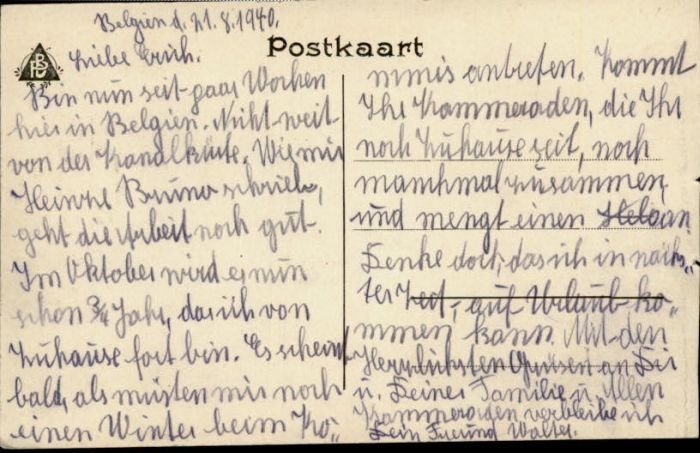 Belgien d. 21.8.1940.
Postkaart
Liebe Erich.
Bin nun seit paar Wochen
hier in Belgien. Niht weit
von der Kanalküste. Wie mir
Heinzel Bruno schrieb,
geht die Arbeit noch gut.
Im Oktober wird es nun
schon 3/4 Jahr, das ich von
Zuhause fort bin. Es scheint
bald, als müsten wir noch
einen Winter beim Ko-
mmis antreten. Kommt
Ihr Kammeraden, die Ihr
noch Zuhause seit, noch
manchmal zusammen,
und mengt einen an.
Denke doch, das ich in nächs-
ter Zeit, auf Urlaub ko-
mmen kann. Mit den
Herzlichsten Grüsen an Dir
u. Deiner Familie u. Allen
Kammeraden verbleibe ich
Dein Freund Walter.